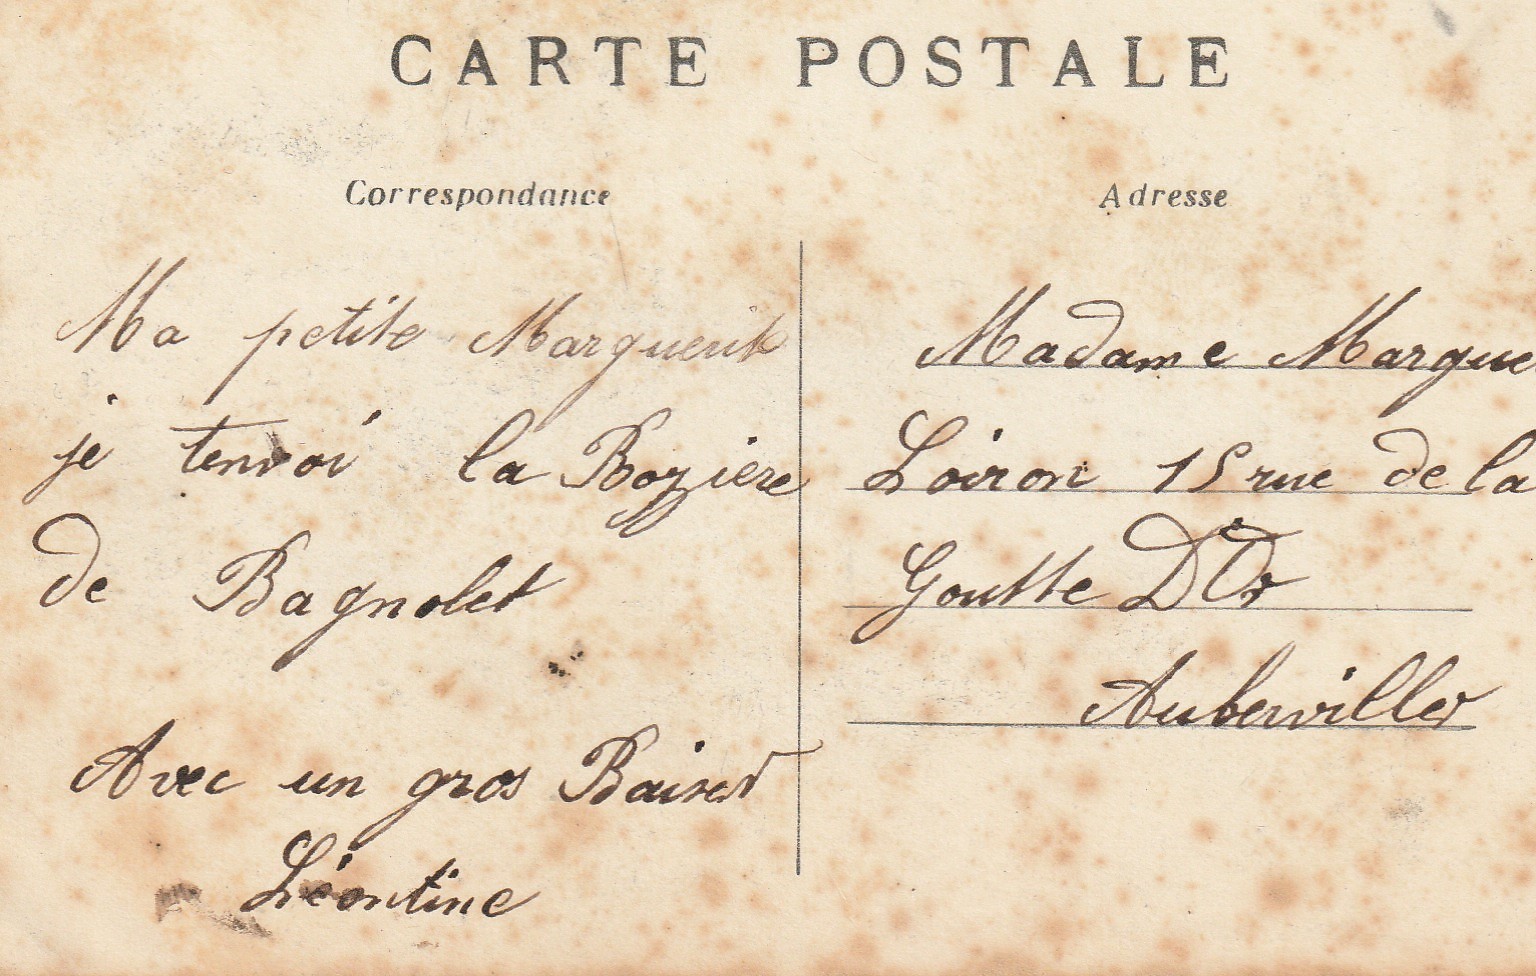 CARTE POSTALE
Correspondance
Ma petite Marguerite
je tenvoi la Rozière
de Bagnolet
Avec un gros Baiser
Léontine
Adresse
Madame Margue
Loiron 15 rue de la
Goutte D'Or
Auberviller